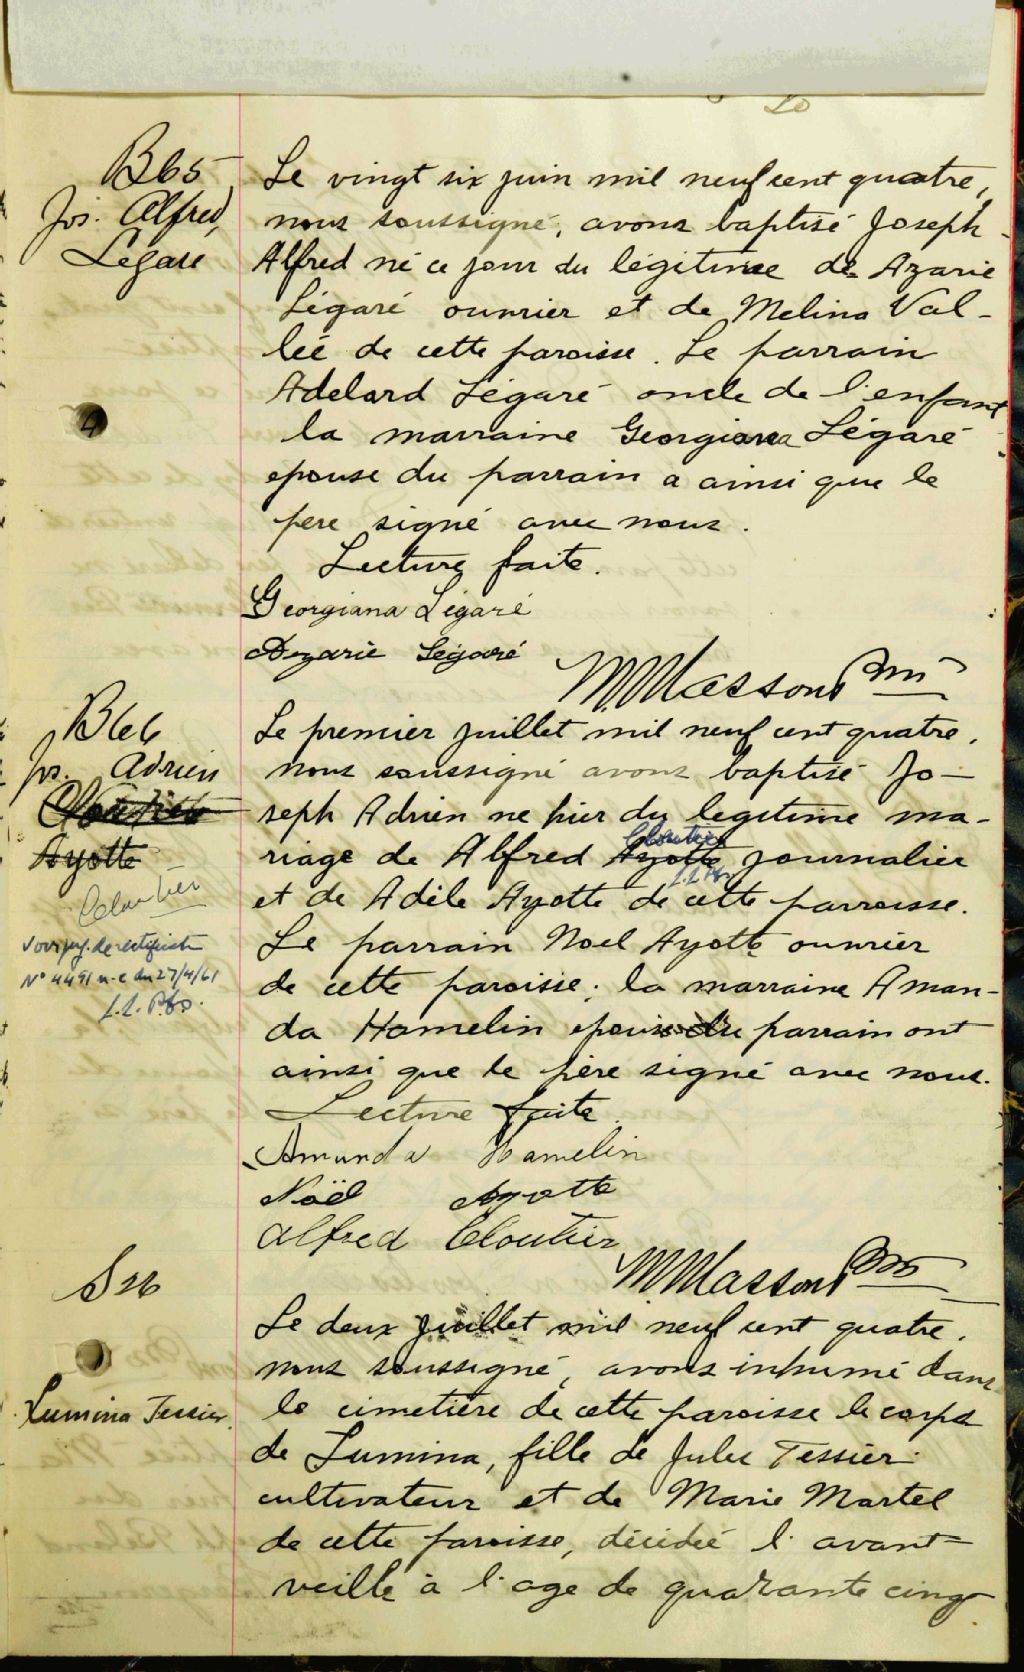 B65
Jos. Alfred,
Légaré
Le vingt six juin mil neuf cent quatre,
nous soussigné, avons baptisé Joseph
Alfred né ce jour du légitime de Azarie
Légaré ouvrier et de Melina Val-
lée de cette paroisse. Le parrain
Adelard Légaré oncle de l'enfant
la marraine Georgiana Légaré
epouse du parrain a ainsi que le
père signé avec nous.
Lecture faite.
Georgiana Légaré
Azarie Légaré
M. Masson Ptre
4
B66
Jos. Adrien
Cloutier
Ayotte
Cloutier
Voir jug. de rectification
No 4491 n-c du 27/4/61
L.L. Pro.
Le premier juillet mil neuf cent quatre,
nous soussigné avons baptisé Jo-
seph Adrien ne hier du legitime ma-
Cloutier
riage de Alfred Ayotte journalier
L.L. Pro
et de Adèle Ayotte de cette parroisse.
Le parrain Noel Ayotte ouvrier
de cette paroisse; la marraine Aman-
da Hamelin epouse du parrain ont
ainsi que le père signé avec nous.
Lecture faite.
Amanda Hamelin
Noël Ayotte
Alfred Cloutier
M Masson Ptre
S26
Lumina Tessier.
Le deux juillet mil neuf cent quatre,
nous soussigné, avons inhumé dans
le cimetière de cette paroisse le corps
de Lumina, fille de Jules Tessier
cultivateur et de Marie Martel
de cette paroisse, décédée l'avant
veille à l'age de quarante cinq